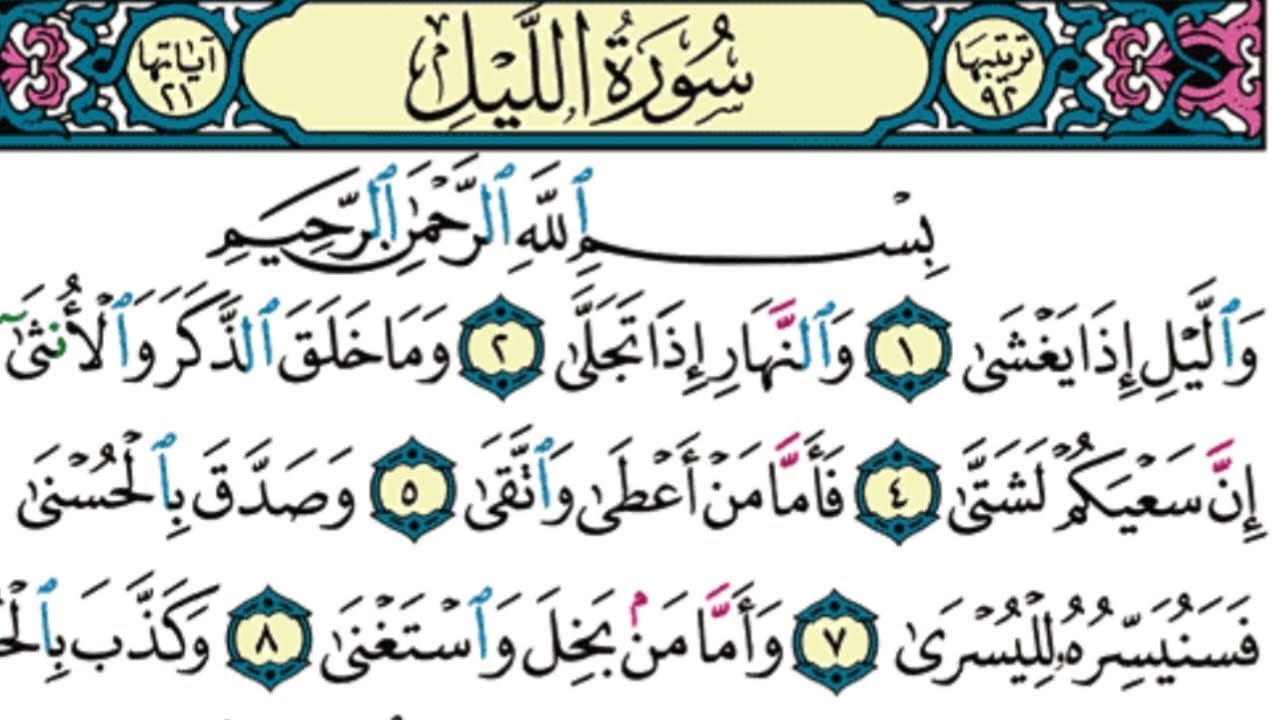 ترتيبها ٩٢ سُورَةُ اللَّيۡلِ آياتها ٢١
بِسۡمِ ٱللَّهِ ٱلرَّحۡمَٰنِ ٱلرَّحِيمِ
وَٱلَّيۡلِ إِذَا يَغۡشَىٰ ١ وَٱلنَّهَارِ إِذَا تَجَلَّىٰ ٢ وَمَا خَلَقَ ٱلذَّكَرَ وَٱلۡأُنثَىٰٓ
إِنَّ سَعۡيَكُمۡ لَشَتَّىٰ ٤ فَأَمَّا مَنۡ أَعۡطَىٰ وَٱتَّقَىٰ ٥ وَصَدَّقَ بِٱلۡحُسۡنَىٰ
فَسَنُيَسِّرُهُۥ لِلۡيُسۡرَىٰ ٧ وَأَمَّا مَنۢ بَخِلَ وَٱسۡتَغۡنَىٰ ٨ وَكَذَّبَ